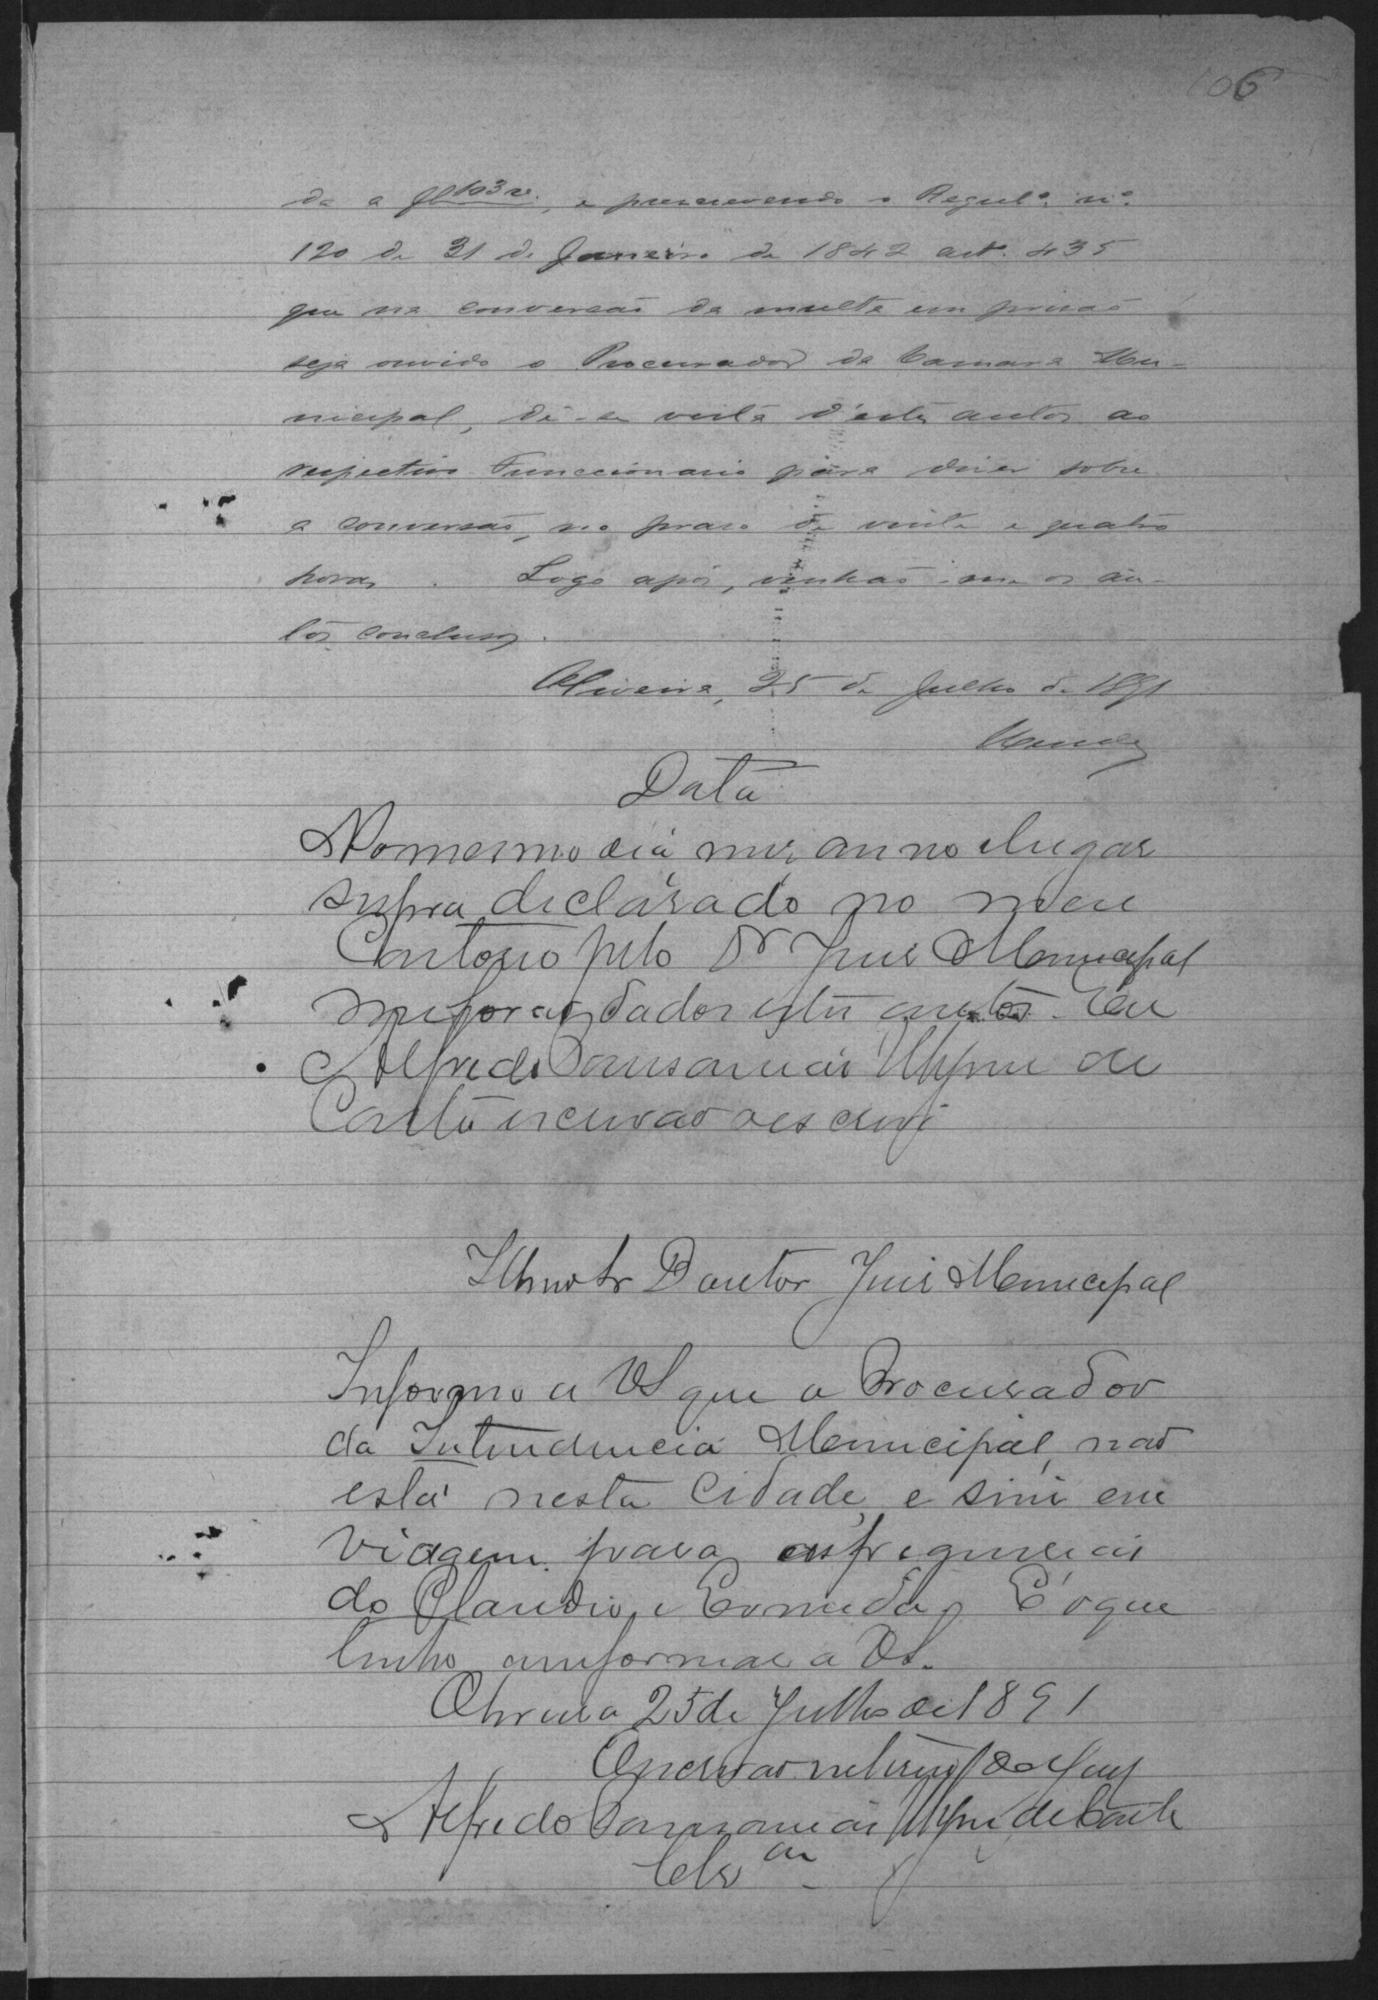 106
da a fl 103 v., e prescrevendo o Regul.º n.º
120 de 31 de Janeiro de 1842 art. 435
que na conversão da multa em prisão
seja ouvido o Procurador da Camara Mu-
nicipal, dê-se vista d'estes autos ao
respectivo Funccionario para dizer sobre
a conversão, no praso de vinte e quatro
horas. Logo após, venhão-me os au-
tos conclusos.
Oliveira, 25 de Julho de 1891
Data
No mesmo dia mes anno e lugar
supra declarado no meu
Cartorio pelo Dr Juis Municipal
me forão dados estes autos. Eu
Alfredo
de
Castro escrivão o escrevi
Illmo Sr Doutor Juis Municipal
Informo a VS que o Procurador
da Intendencia Municipal, não
está nesta Cidade, e sim em
viagem para as freguesias
do Claudio, e Ermida, É o que
tenho a informar a VS.
Oliveira 25 de Julho de 1891
O escrivão
Alfredo
de Castro